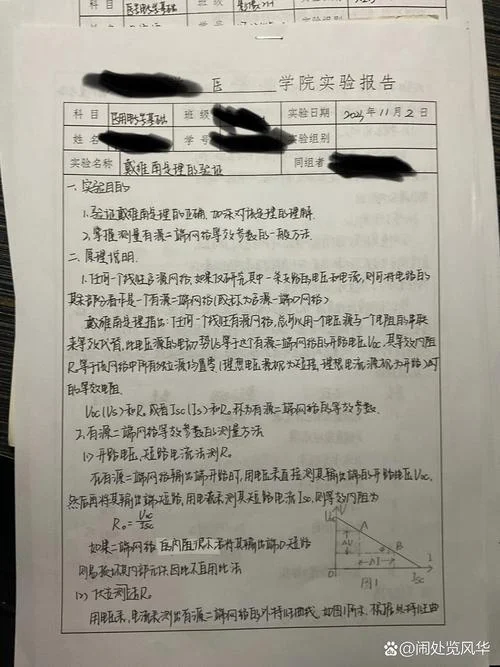 科目 医学电学基础 班级
医 学院实验报告
科目 医用电学基础 班级 实验日期 2024年11月2日
姓名 学号 实验组别
实验名称 戴维南定理的验证 同组者
一.实验目的
1.验证戴维南定理的正确,加深对该定理的理解.
2.掌握测量有源二端网络等效参数的一般方法.
二.原理说明.
1.任何一个线性含源网络,如果仅研究其中一条支路的电压和电流,则可将电路的
其余部分看作是一个有源二端网络(或称为含源一端口网络)
戴维南定理指出:任何一个线性有源网络,总可以用一个电压源与一个电阻的串联
来等效代替,此电压源的电动势Us等于这个有源二端网络的开路电压Uoc,其等效内阻
R₀等于该网络中所有独立源均置零(理想电压源视为短接,理想电流源视为开路)时
的等效电阻.
Uoc(Us)和R₀或者Isc(Is)和R₀称为有源二端网络的等效参数.
2.有源二端网络等效参数的测量方法
(1)开路电压、短路电流法测R₀
在有源二端网络输出端开路时,用电压表直接测其输出端的开路电压Uoc,
然后再将其输出端短路,用电流表测其短路电流Isc,则等效内阻为
R₀=Uoc/Isc
如果二端网络的内阻很小若将其输出端口短路
则易损坏其内部元件,因此不宜用此法
(2)伏安法测R₀
用电压表、电流表测出有源二端网络的外特性曲线,如图1所示.根据外特性曲
U
Uoc
A
ΔU
φ
B
ΔI
I
O
Isc
图1
@闹处览风华